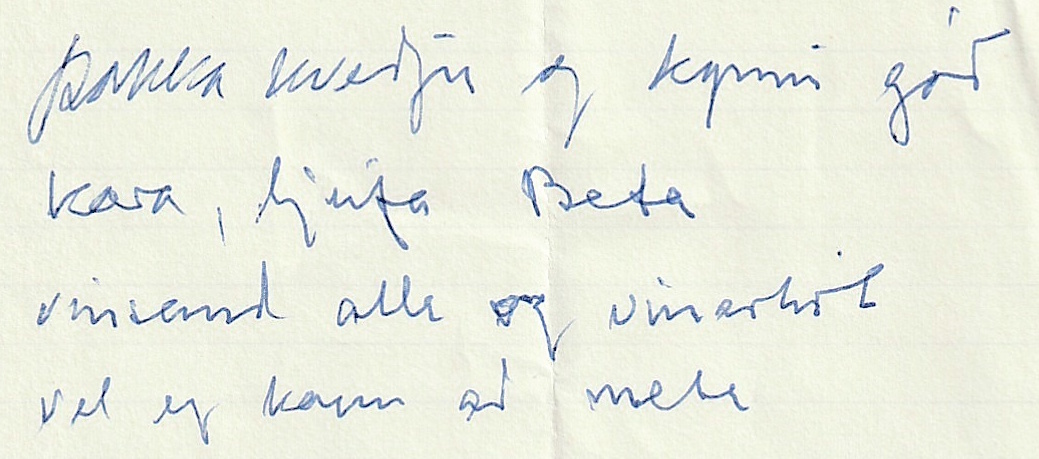 Þakka kveðju og kynni góð
kæra, ljúfa Beta
vinsemd alla og vinarhót
vel eg kann að meta